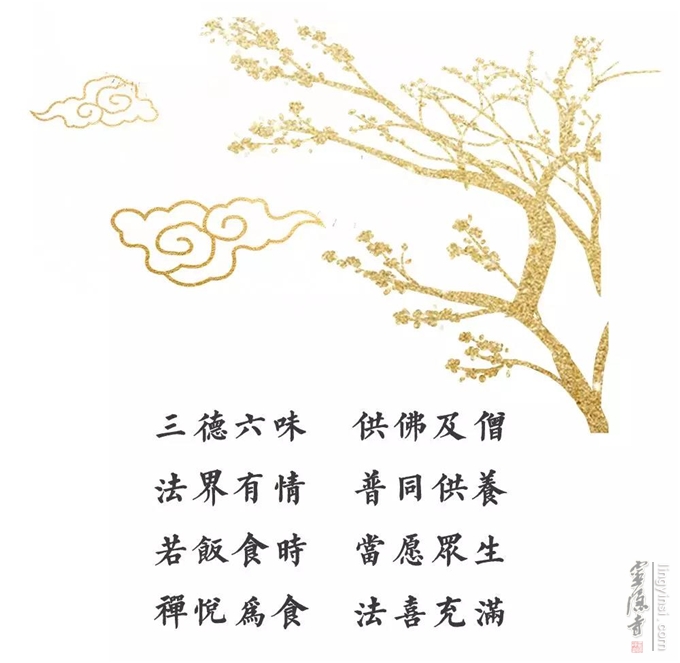 三德六味 供佛及僧
法界有情 普同供養
若飯食時 當愿眾生
禪悅爲食 法喜充滿
lingyinsi.com